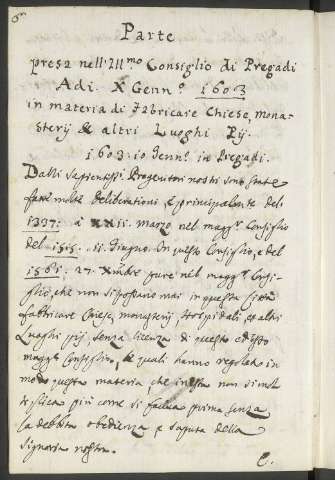 Parte
presa nell'Ill.mo Consiglio di Pregadi
Adi. X Genn.o 1603
in materia di Fabricare Chiese, mona-
sterij & altri Luoghi Pij.
1603: 10 Genn.o in Pregadi.
Dalli sapientiss.i Progenitori nostri sono state
fatte molte deliberationi, & principalmente del
1337. a XXII. marzo nel magg.r Consiglio
del 1515. 11. Giugno. In questo Consiglio, e del
1561. 27. Xmbre pure nel magg.r Consi-
glio, che non si possano mai in questa Città
fabbricare Chiese, monasterij, Hospidali, & altri
Luoghi pij senza licenza di questo
magg.r Consiglio, le quali hanno regolato in
modo questa materia che non
più come si faceva prima senza
la debbita obedienza e saputa della
signoria nostra.